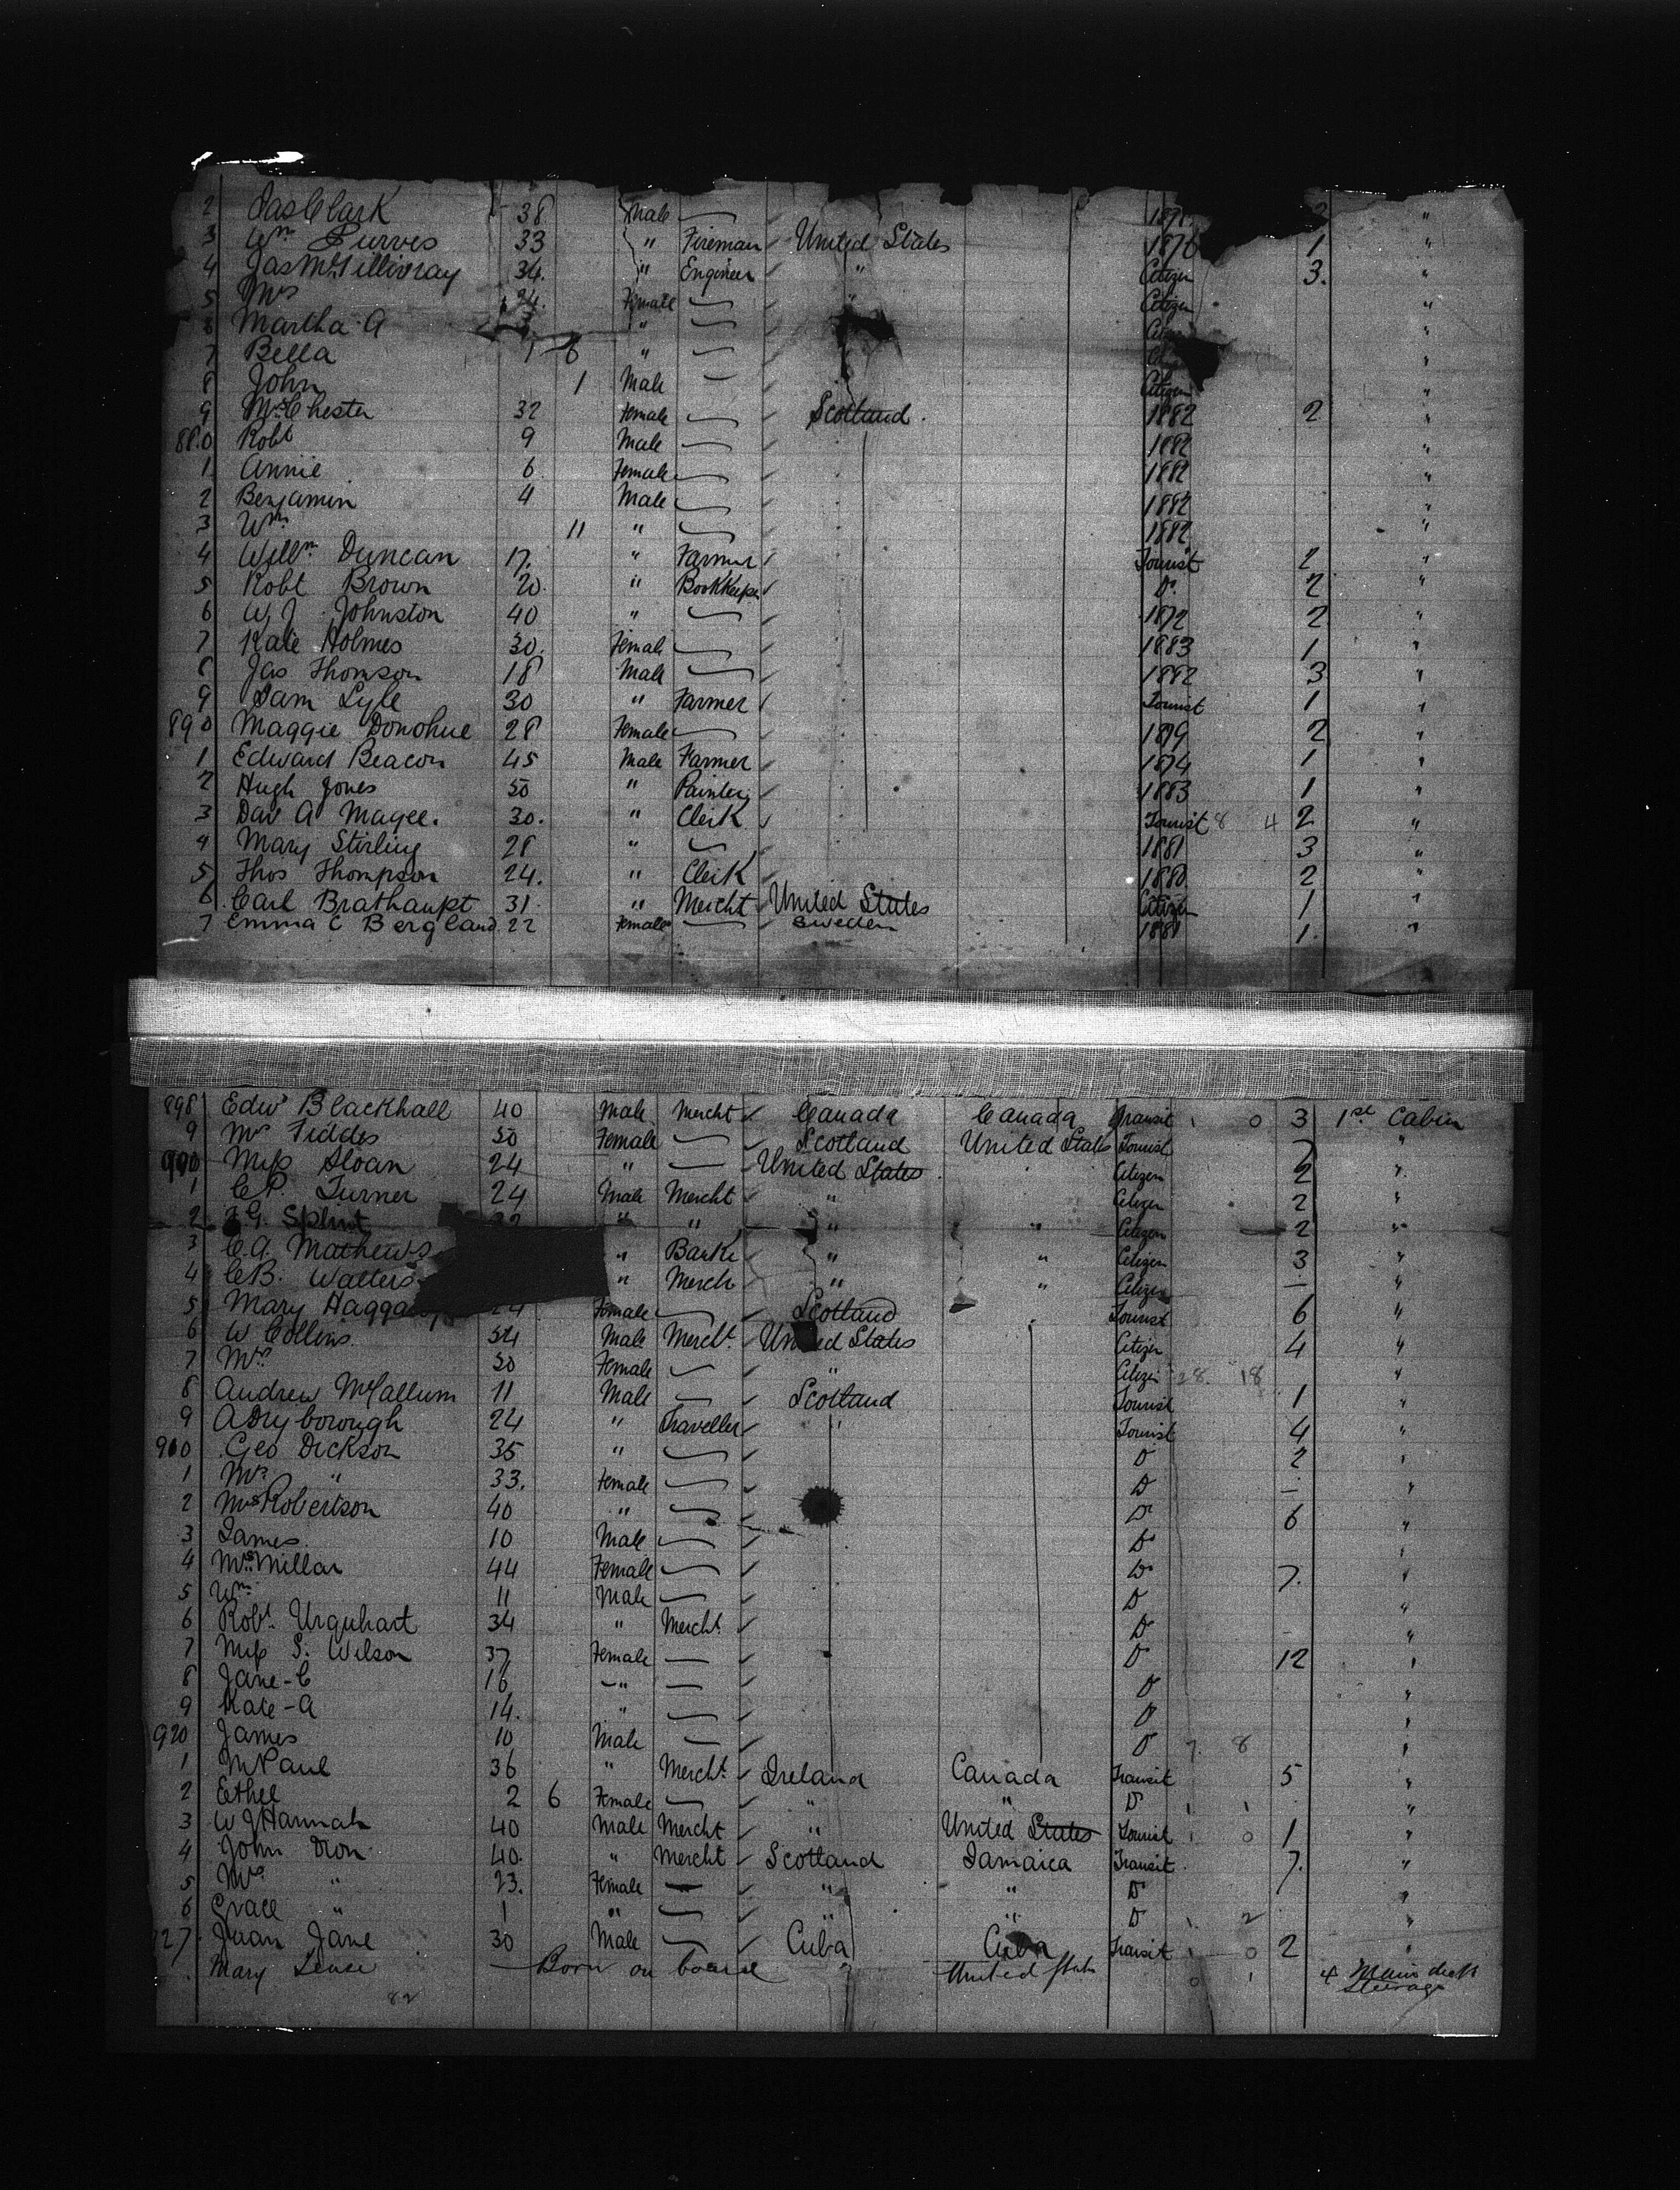 2 Jas Clark 38 Male — 2 "
3 Wm Purves 33 " Fireman United States 1876 1 "
4 Jas McGillivray 34. " Engineer " Citizen 3. "
5 Mrs 24. Female — " Citizen "
6 Martha A " — "
7 Bella 1 6 " — "
8 John 1 Male — Citizen "
9 Mrs Chester 32 Female — Scotland. 1882 2 "
880 Robt 9 Male — 1882 "
1 Annie 6 Female — 1882 "
2 Benjamin 4 Male — 1882 "
3 Wm 11 " — 1882 "
4 Willm Duncan 17. " Farmer Tourist 2 "
5 Robt Brown 20. " Bookkeeper Do 2 "
6 W J Johnston 40 " — 1872 2 "
7 Kate Holmes 30. Female — 1883 1 "
8 Jas Thomson 18 Male — 1882 3 "
9 Sam Lyle 30 " Farmer Tourist 1 "
890 Maggie Donohue 28 Female — 1879 2 "
1 Edward Beacon 45 Male Farmer 1874 1 "
2 Hugh Jones 50 " Painter 1883 1 "
3 Dav A Magee. 30. " Clerk Tourist 8 4 2 "
4 Mary Stirling 28 " — 1881 3 "
5 Thos Thompson 24. " Clerk 1880 2 "
6 Carl Brathaupt 31. " Mercht United States Citizen 1 "
7 Emma C Bergland 22 Female — Sweden 1881 1. "
898 Edwd Blackhall 40 Male Mercht Canada Canada Transit 1 0 3 1st Cabin
9 Mrs Fiddes 50 Female — Scotland United States Tourist 7 "
900 Miss Sloan 24 " — United States Citizen 2 "
1 C.P. Turner 24 Male Mercht " Citizen 2 "
2 Splint 32 " " " " Citizen 2 "
3 C.A. Mathews " " " Citizen 3 "
4 C.B. Walters " Merch " " Citizen — "
5 Mary 24 Female — Scotland Tourist 6 "
6 W Collins. 54 Male Mercht. United States Citizen 4 "
7 Mrs 50 Female — " Citizen 28. 18 "
8 Andrew McCallum 11 Male — Scotland Tourist 1 "
9 A Dryborough 24 " Traveller " Tourist 4 "
910 Geo Dickson 35 " — Do 2 "
1 Mrs " 33. Female — Do — "
2 Mrs Robertson 40 " — Do 6 "
3 James. 10 Male — Do "
4 Mrs Millar 44 Female — Do 7. "
5 Wm 11 Male — Do "
6 Robt. Urquhart 34 " Mercht. Do "
7 Miss S. Wilson 37 Female — Do 12 "
8 Jane-C 16 " — Do "
9 Kate-A 14. " — Do "
920 James 10 Male — Do 7. 8 "
1 M Paul 36 " Mercht. Ireland Canada Transit 5 "
2 Ethel 2 6 Female — " " Do 1 1 "
3 W J Hannah 40 Male Mercht " United States Tourist 1 0 1 "
4 John Dron 40. " Mercht Scotland Jamaica Transit 7. "
5 Mrs " 23. Female — " " Do "
6 Grace " 1 " — " " Do 1. 2 "
27 Juan Jane 30 Male — Cuba Cuba Transit 1 0 2 "
Mary Born on board " United States 0 1 4 Main deck
Steerage
82